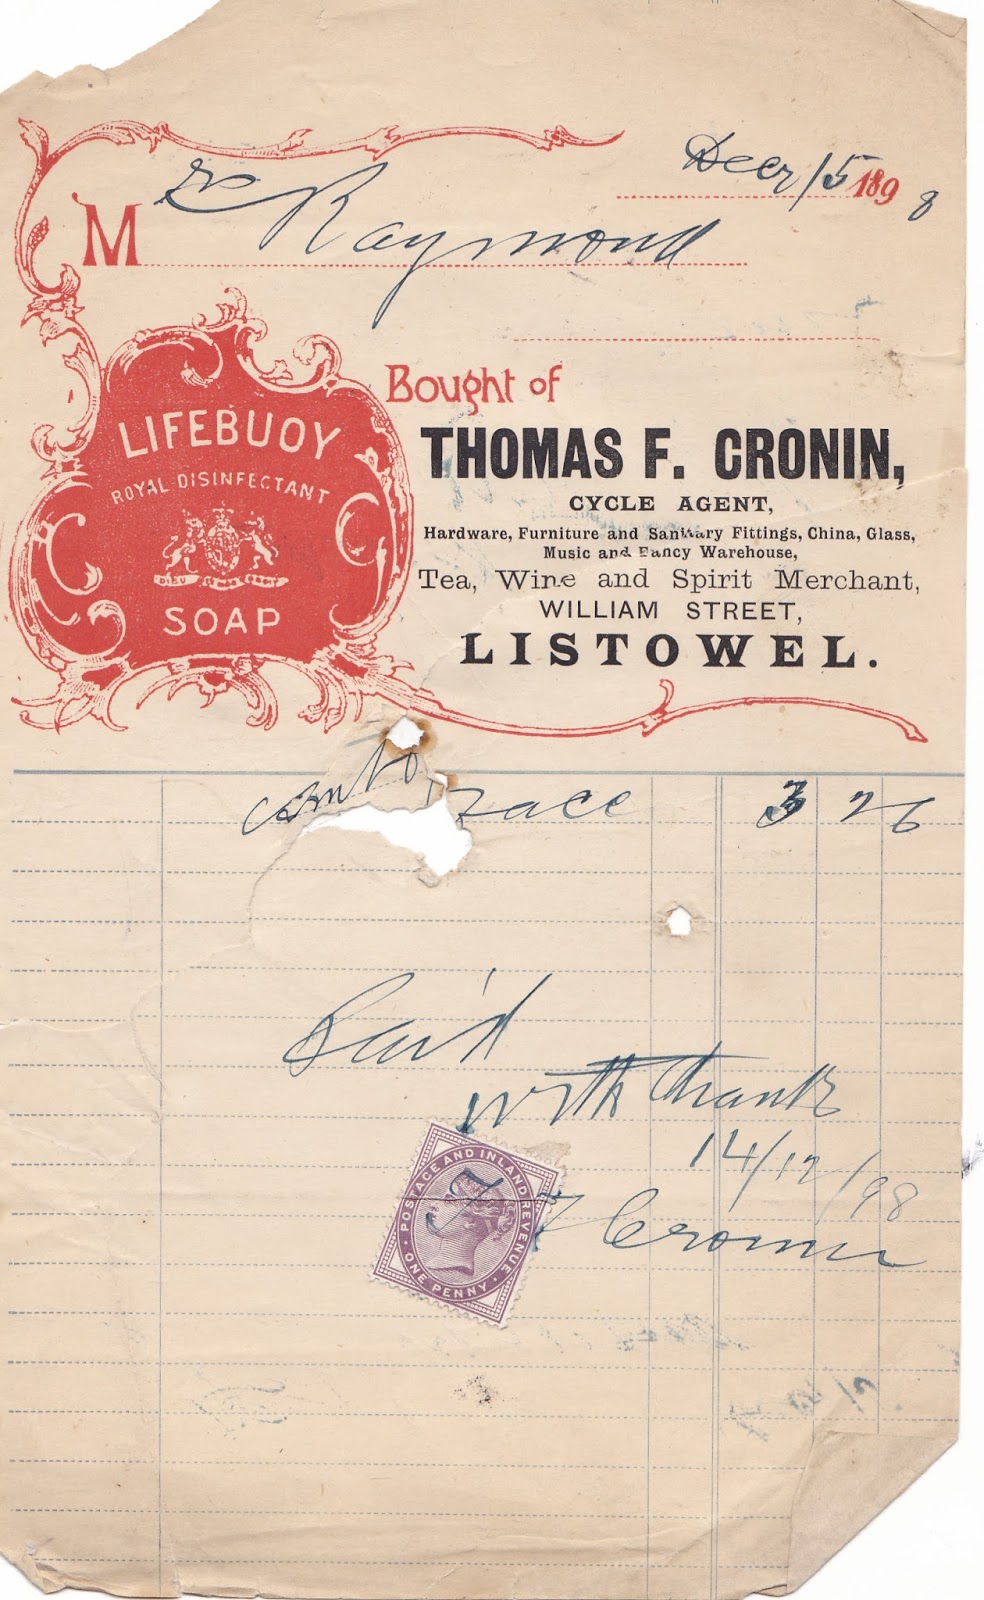 Decr 15 1898
Mr Raymond
LIFEBUOY
ROYAL DISINFECTANT
SOAP
Bought of
THOMAS F. CRONIN,
CYCLE AGENT,
Hardware, Furniture and Sanitary Fittings, China, Glass,
Music and Fancy Warehouse,
Tea, Wine and Spirit Merchant,
WILLIAM STREET,
LISTOWEL.
3 2 6
Paid
with thanks
14/12/98
T F Cronin
POSTAGE AND INLAND REVENUE
ONE PENNY